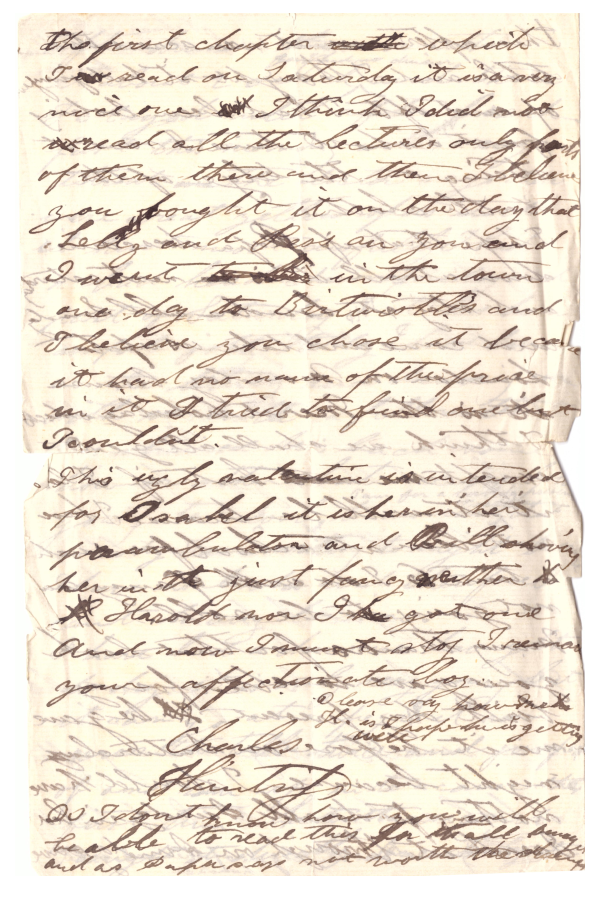 the first chapter which
I read on Saturday it is a very
nice one I think I did not
read all the Lectures only parts
of them there and then I believe
you bought it on the day that
Letty and you and
I went in the town
one day to Birtwistle's and
I believe you chose it becau
it had no name of the prise
in it I tried to find one but
I couldn't.
This ugly valentine is intended
for Isabel it is her in her
parambulator and Bill shoving
her in it just fancy neither
Harold nor I got one
And now I must stop I remain
your affectionate boy.
Please say how
is I hope he is getting
well
Charles
as I dont know how you will
be able to read this for it all
and as Papa says not worth the